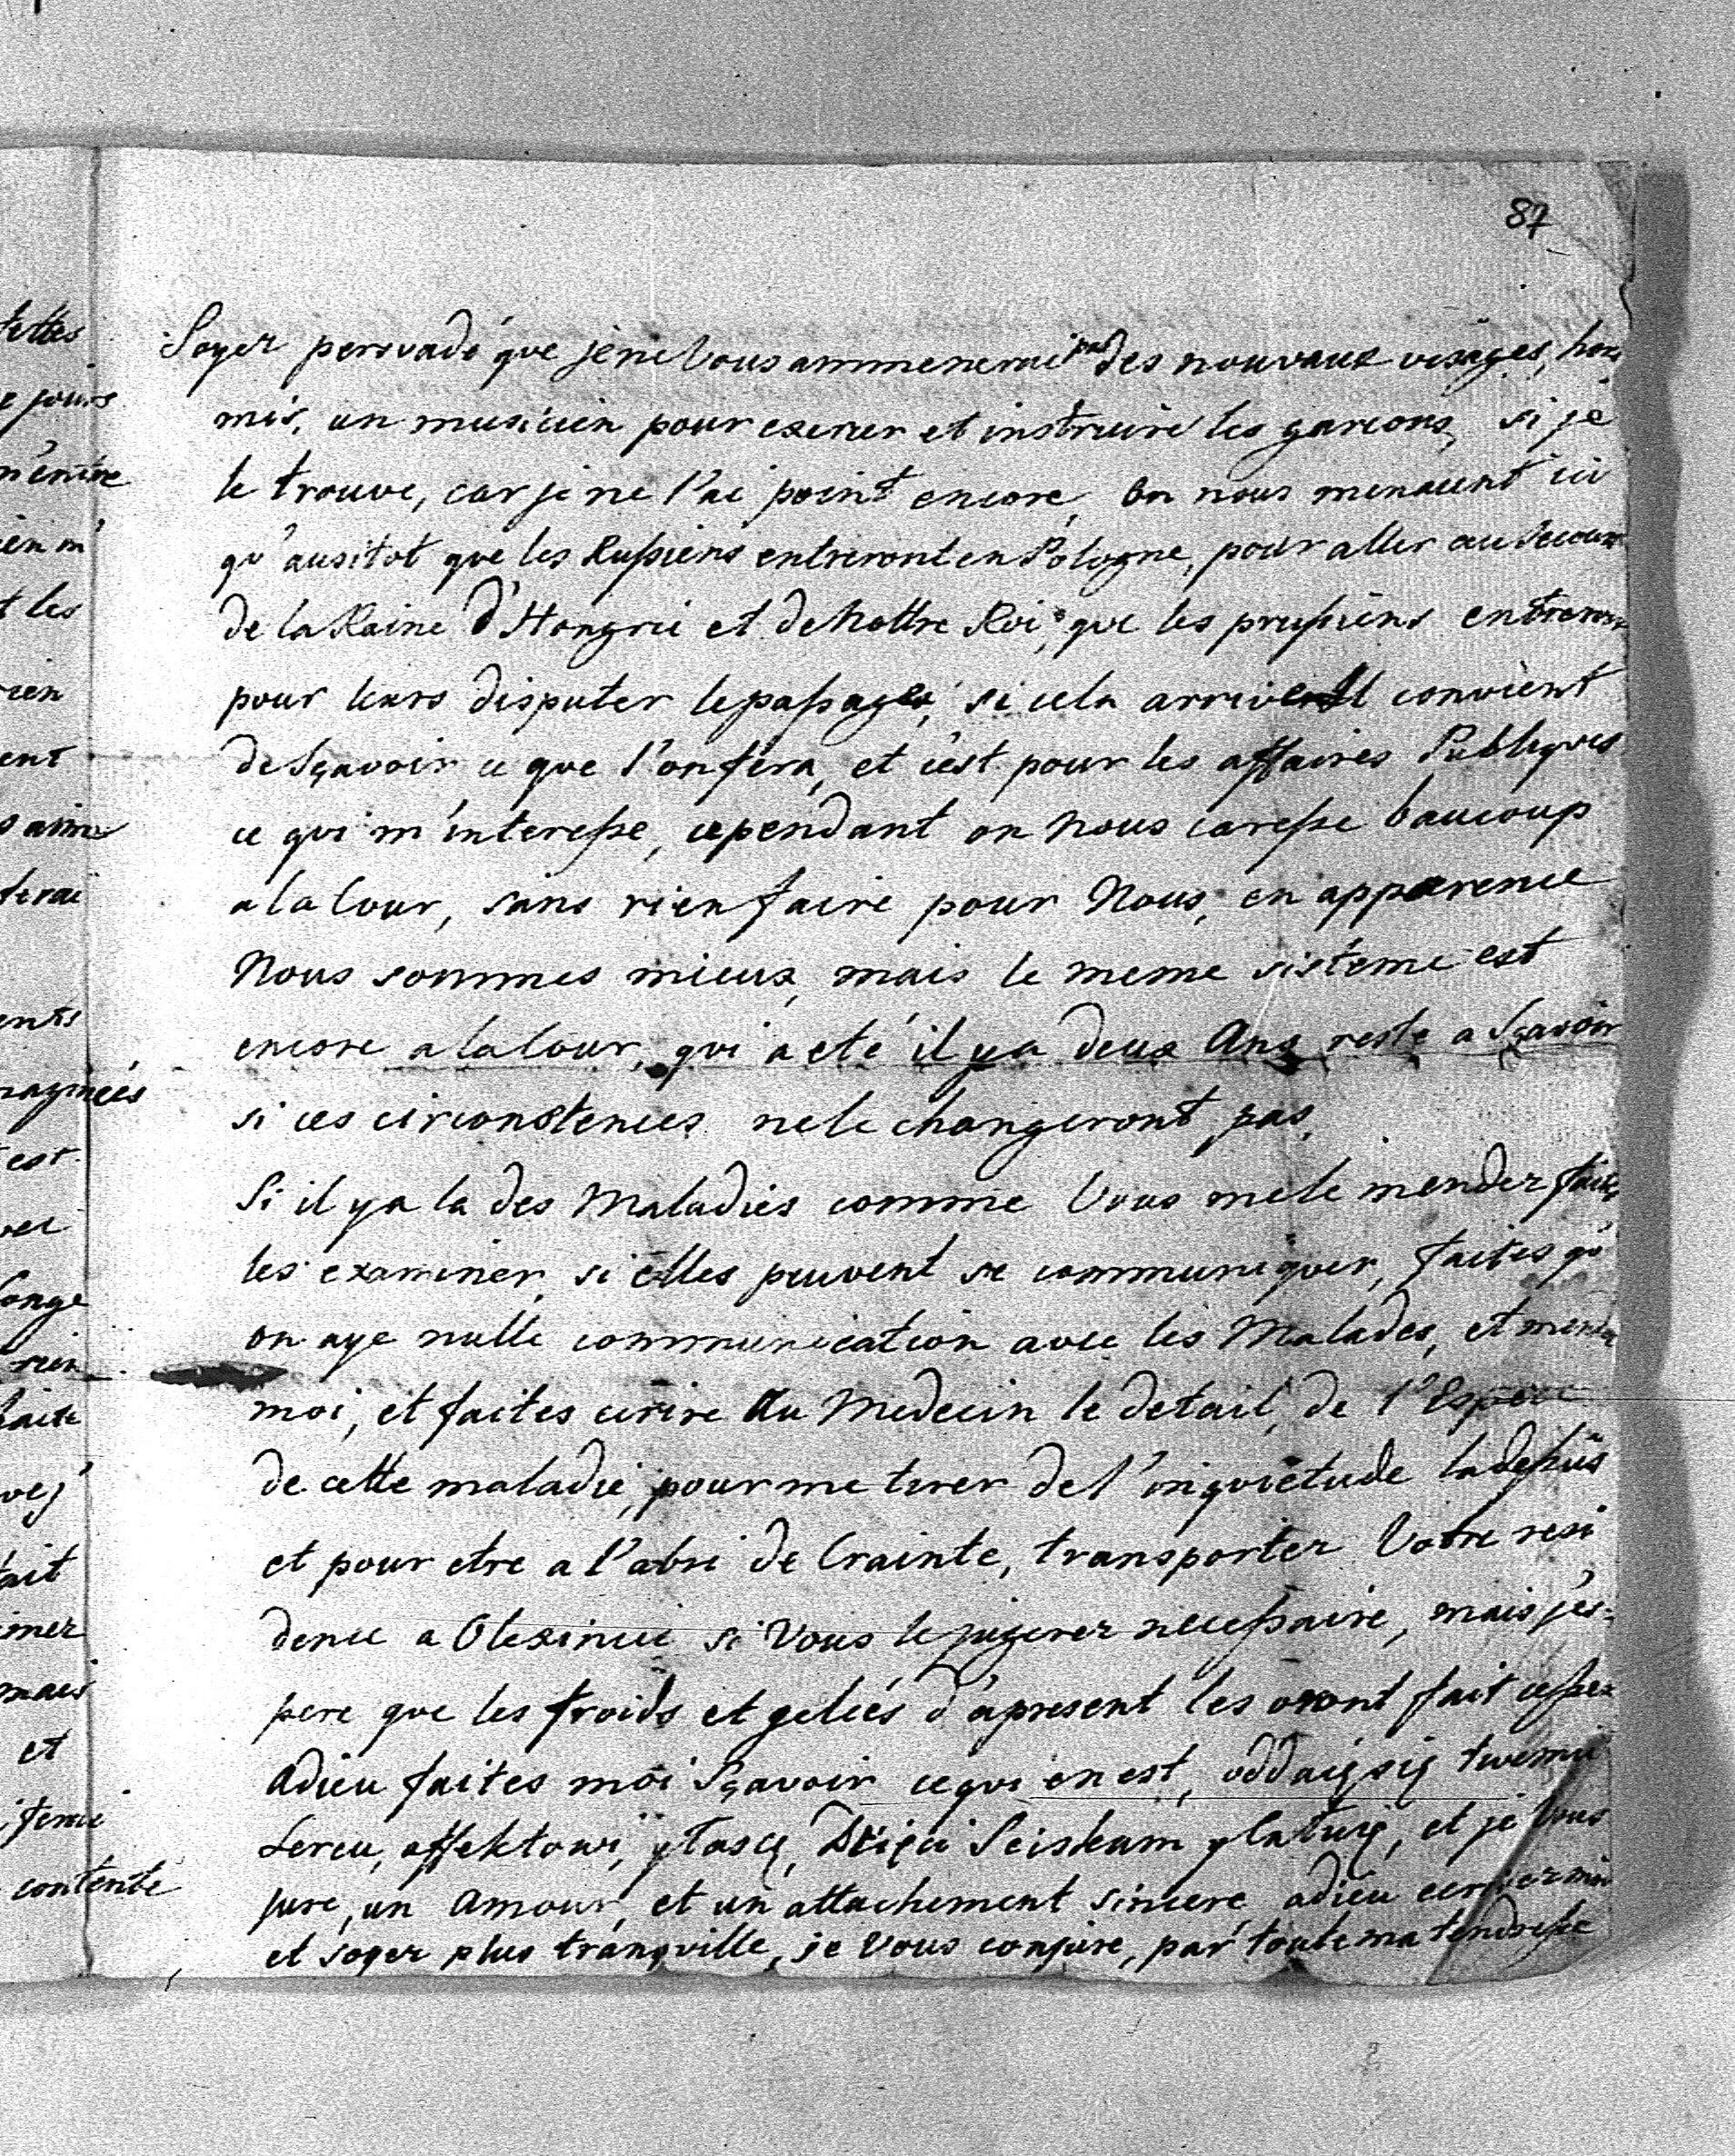 87
Soyez persvadé que je ne Vous ammenerai pas des nouvaux visages, hor
mis, un musicien pour exerier et instruire les garcons, si je
le trouve, car je ne l'ai point encore, On nous menacent ici
qu'ausitot que les Russiens entreront en Pologne, pour aller au secours
de la Raine d'Hongrie et de Nottre Roi, que les prussiens entreron
pour leurs disputer le passage, si cela arrive Il convient
de Sçavoir ce que l'on fera, et c'est pour les affaires Publiques
ce qui m'interesse, cependant on nous caresse baucoup
a la Cour, sans rien faire pour Nous, en apparence
Nous sommes mieux, mais le meme sisteme est
encore a la Cour, qui a eté il y a deux Ans, reste a Sçavoir
si ces circonstences ne le changeront pas,
Si il y a la des Maladies comme Vous me le mender faites
les examiner, si elles peuvent se communiquer, faites qu'
on aye nulle communication avec les Malades, et mender
moi, et faites ecrire au Medecin le detail, de l'Espece
de cette maladie, pour me tirer de l'inquietude ladessus
et pour etre a l'abri de Crainte, transporter Votre resi
dence a Olexinie si Vous le jugerez necessaire, mais j'es-
pere que les froids et gelées d'apresent les oront fait cesser
Adieu faites moi Sçavoir ce qui en est, oddaię się twemu
Sercu, affektowi, y Łasce, Dzieci Sciskam y Całuię, et je Vous
jure, un Amour, et un attachement sincere, adieu moi
et soyez plus tranqville, je Vous conjure, par toute ma tendresse
tettes
jours
m'
t les
rien
ent
terai
est
rien
faite
ait
mais
et
contente